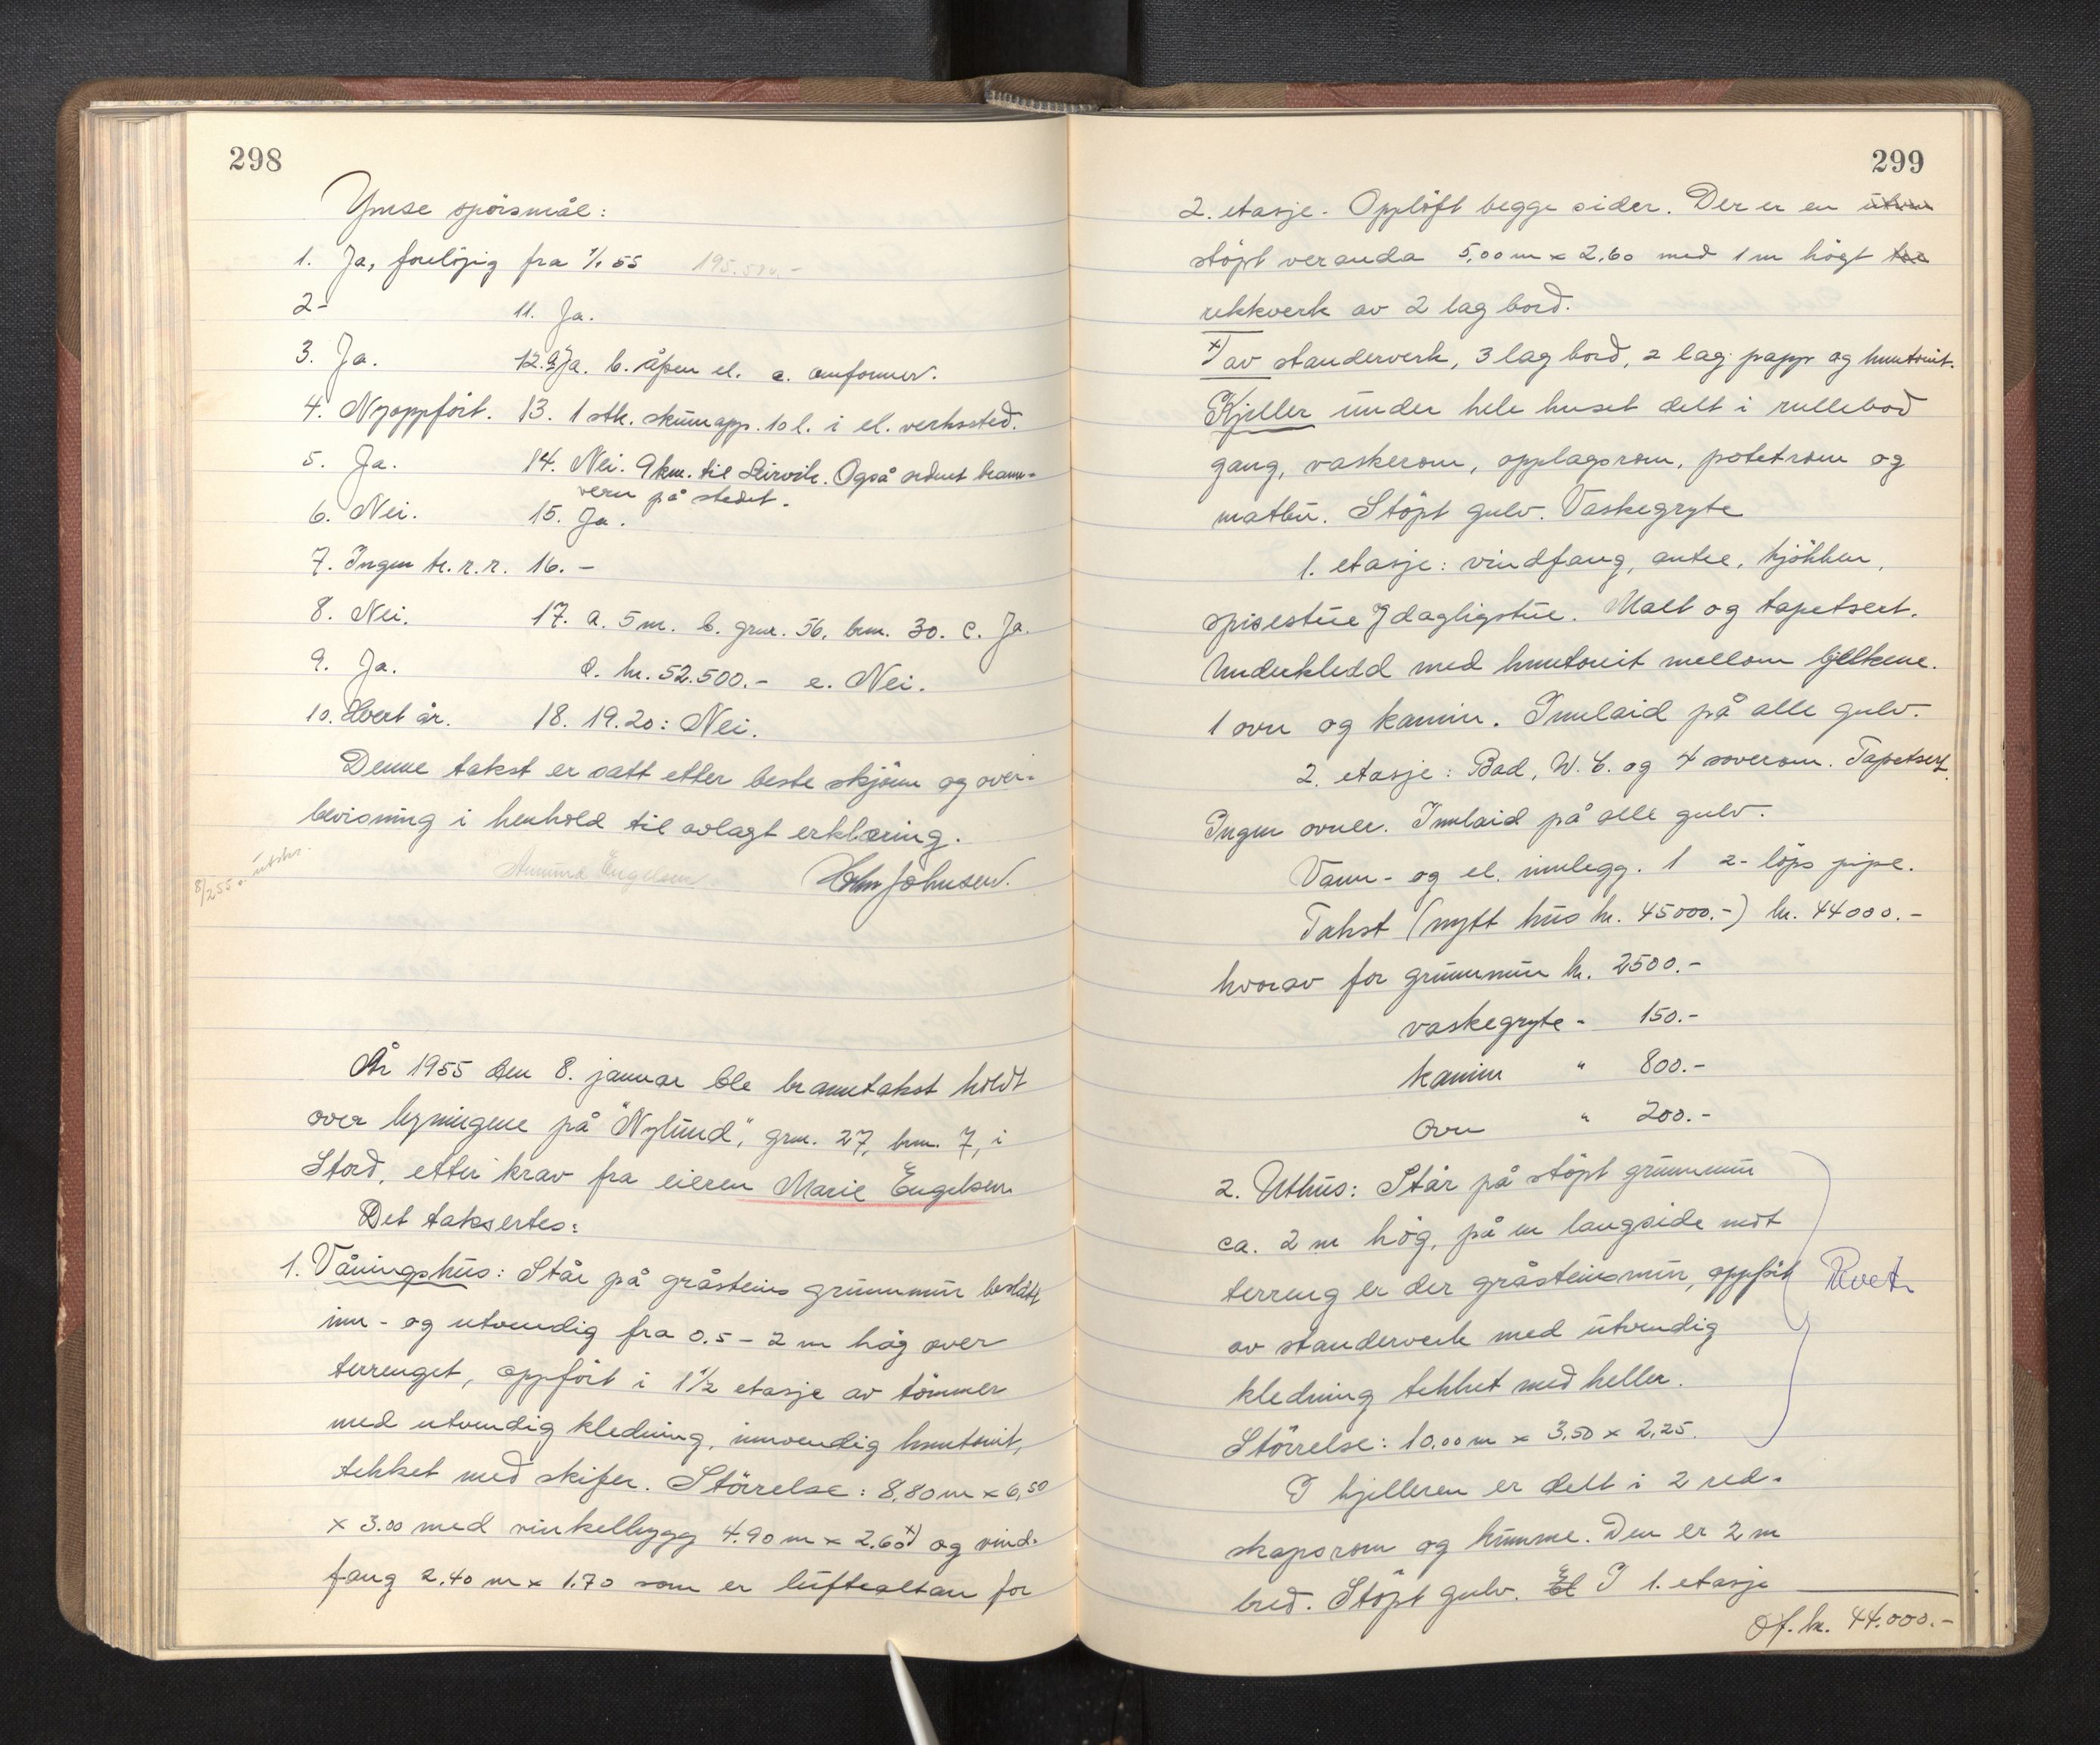 298
Ymse spörsmål:
1. Ja, forelöpig fra 1/1 55 195.500.-
2- 11. Ja.
3. Ja. 12. a. Ja. b. åpen el. c. omformer.
4. Nyoppfört. 13. 1 stk. skumapp. 10 l. i el. verksted.
5. Ja. 14. Nei. 9 km. til Leirvik. Også ordnet brann-
vern på stedet.
6. Nei. 15. Ja.
7. Ingen br. r. r. 16. -
8. Nei. 17. a. 5 m. b. gnr. 56, bnr. 30. c. Ja.
9. Ja. d. kr. 52.500.- e. Nei.
10. Hvert år. 18. 19. 20: Nei.
Denne takst er satt etter beste skjönn og over-
bevisning i henhold til avlagt erklæring.
8/2 55 utskr.
Amund Engelsen Johs Johnsen.
År 1955 den 8. januar ble branntakst holdt
over bygningene på "Nylund", gnr. 27, bnr. 7, i
Stord, etter krav fra eieren Marie Engelsen
Det taksertes:
1. Våningshus: Står på gråsteins grunnmur beslått
inn- og utvendig fra 0.5 - 2 m höy over
terrenget, oppfört i 1 1/2 etasje av tömmer
med utvendig kledning, innvendig huntonit,
tekket med skifer. Störrelse: 8,80 m x 6,50
x 3.00 med vinkelbygg 4.90 m x 2.60 x) og vind-
fang 2.40 m x 1.70 som er luftealtan for
299
2. etasje. Opplöft begge sider. Der er en utven
stöpt veranda 5,00 m x 2,60 med 1 m högt tre
rekkverk av 2 lag bord.
x) av standerverk, 3 lag bord, 2 lag papp og huntonit.
Kjeller under hele huset delt i rullebod
gang, vaskerom, opplagsrom, potetrom og
matbu. Stöpt gulv. Vaskegryte
1. etasje: vindfang, entre, kjökken,
spisestue & dagligstue. Malt og tapetsert.
Underkledd med huntonit mellom bjelkene.
1 ovn og kamin. Innlaid på alle gulv.
2. etasje: Bad, W.C. og 4 soverom. Tapetsert.
Ingen ovner. Innlaid på alle gulv.
Vann- og el. innlegg. 1 2-löps pipe.
Takst (nytt hus kr. 45000.-) kr. 44000.-
hvorav for grunnmur kr. 2500.-
vaskegryte - 150.-
kamin " 800.-
ovn " 200.-
2. Uthus: Står på stöpt grunnmur
ca. 2 m hög, på en langside mot
terreng er der gråsteinsmur, oppfört
av standerverk med utvendig
kledning tekket med heller.
Störrelse: 10,00 m x 3,50 x 2,25.
Revet
I kjelleren er delt i 2 red-
skapsrom og kumme. Den er 2 m
bred. Stöpt gulv. El I 1. etasje
Of. kr. 44.000.-